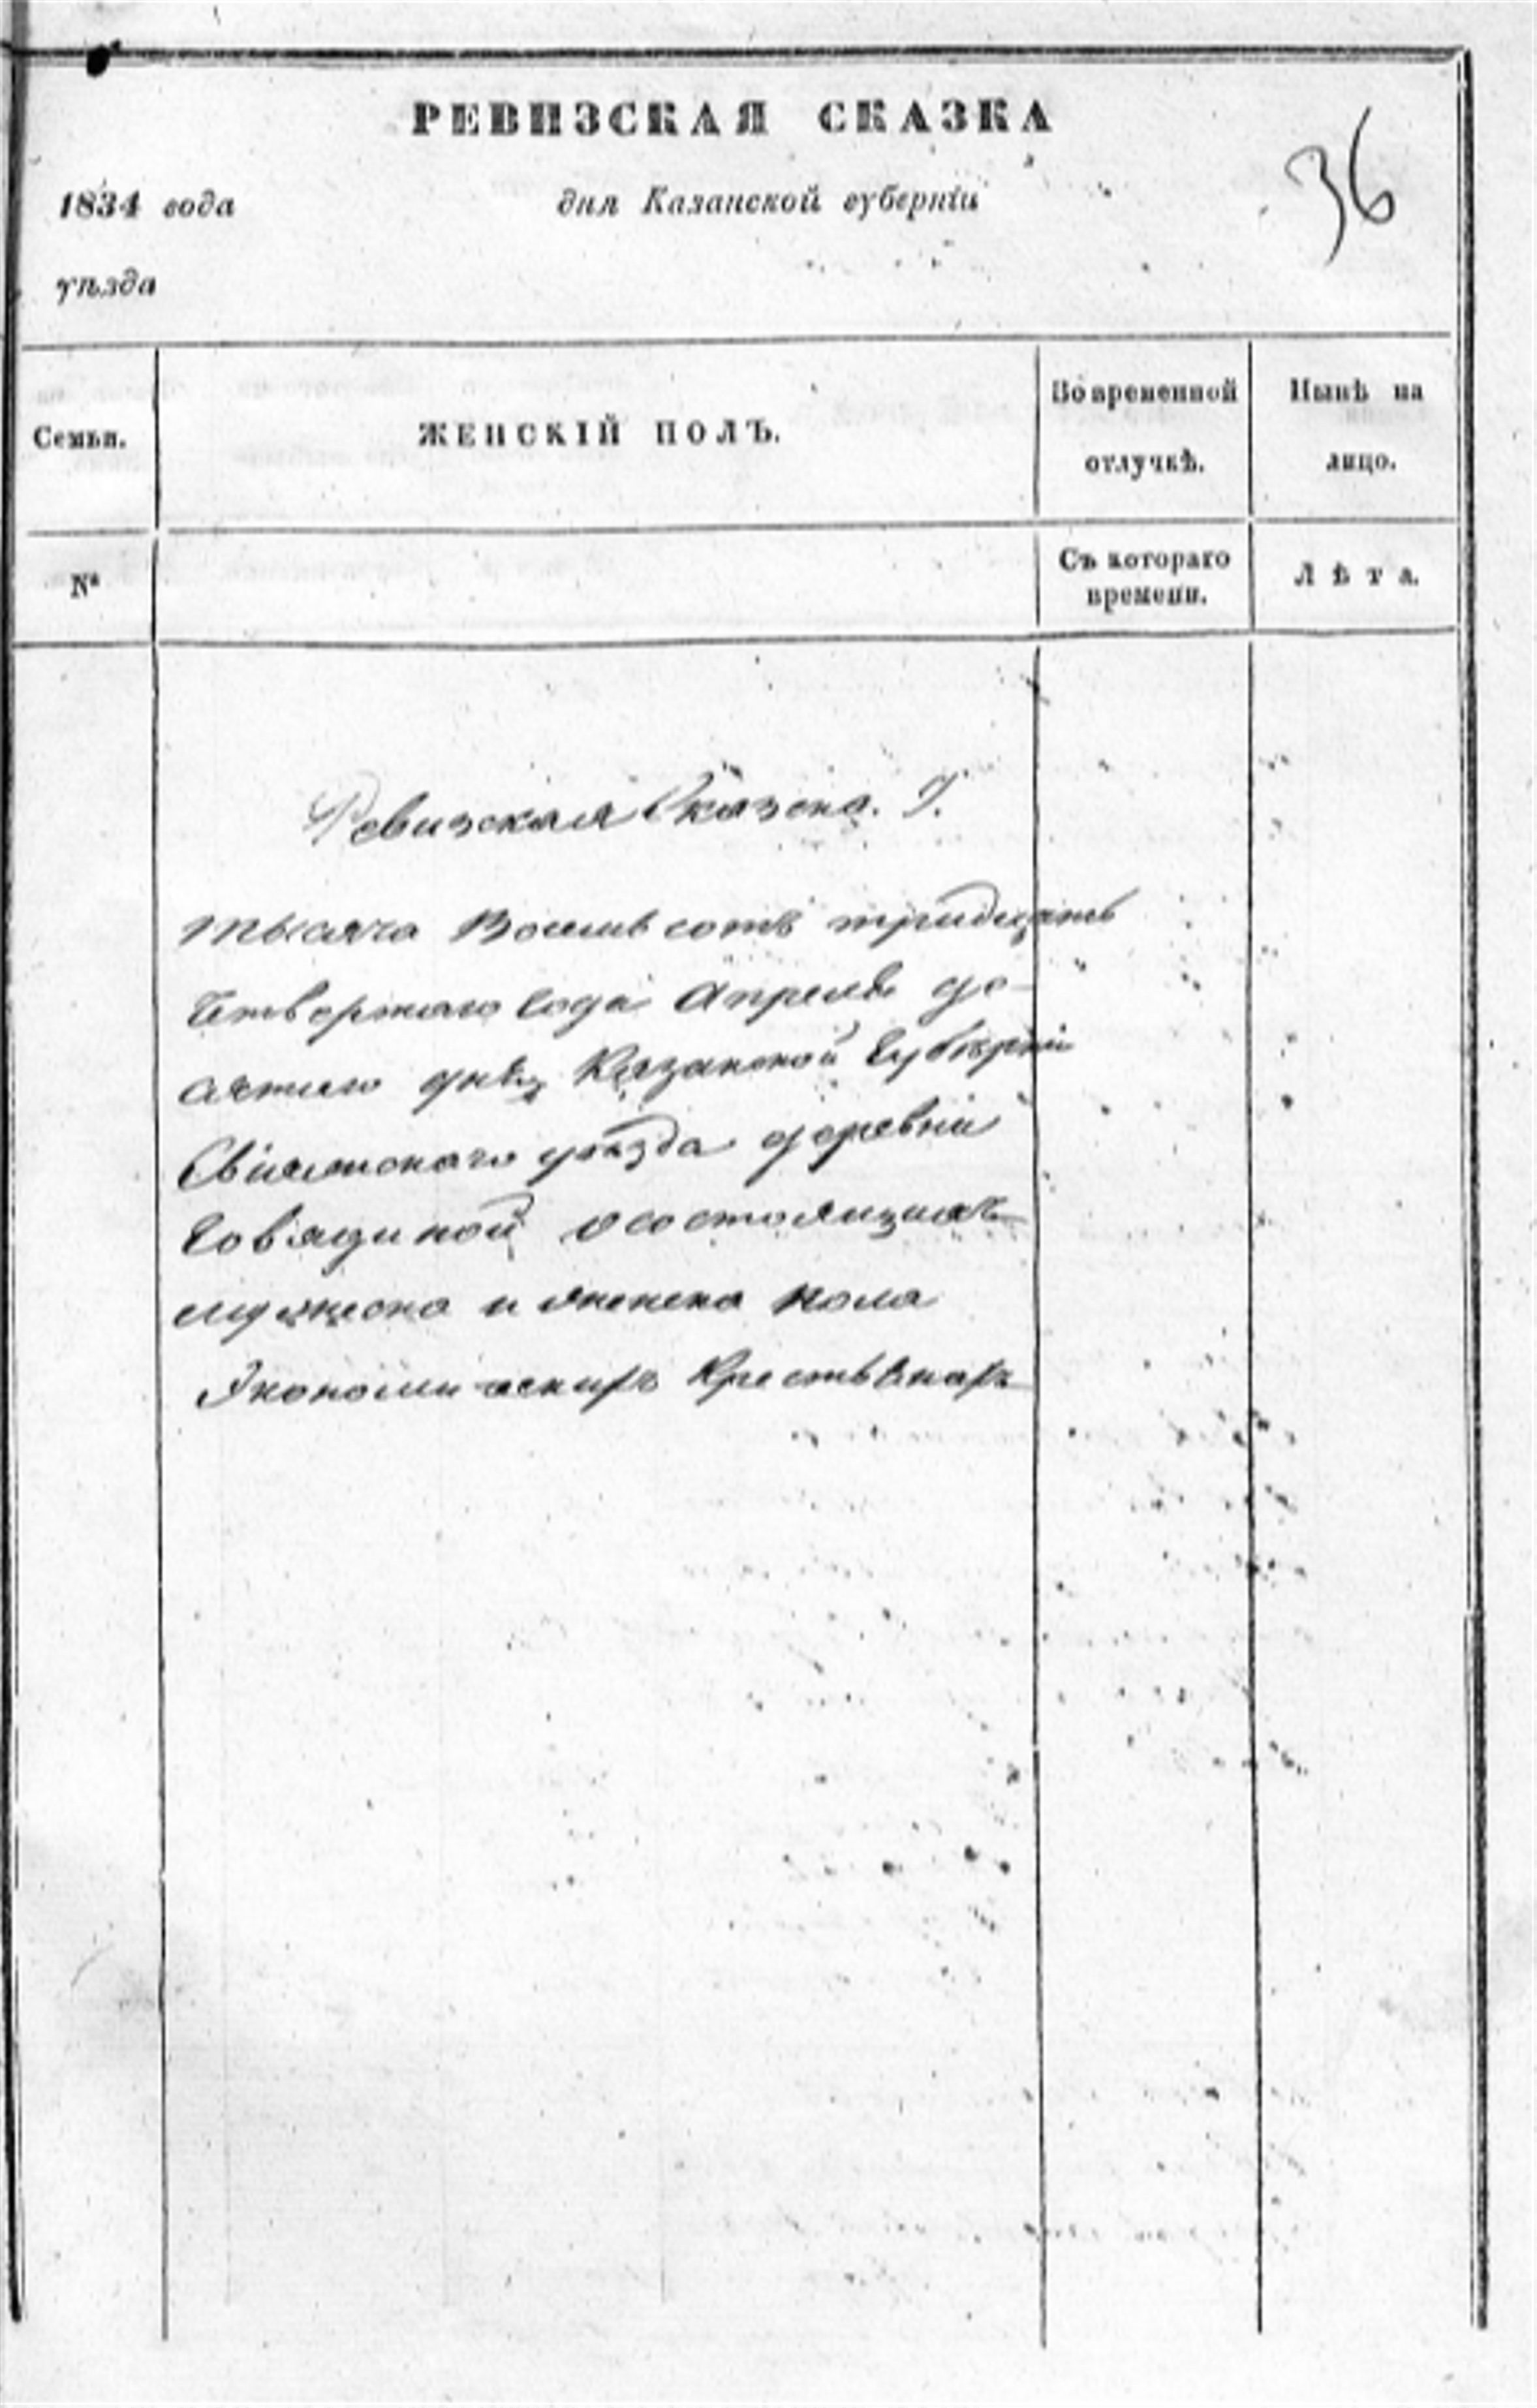 РЕВИЗСКАЯ СКАЗКА
36
1834 года дня Казанской губерніи
уѣзда
Семьи. ЖЕНСКІЙ ПОЛЪ. Во временной отлучкѣ. Нынѣ на лицо.
№ Съ котораго времени. Лѣта.
Ревизская Сказска.
тысяча Восемь сотъ тридцать
Четвертаго Года Апреля де-
сятаго дня Казанской Губерніи
Свіяжскаго уѣзда деревни
Говядиной о состоящихъ
мужеска и женска пола
Экономическихъ Крестьянахъ